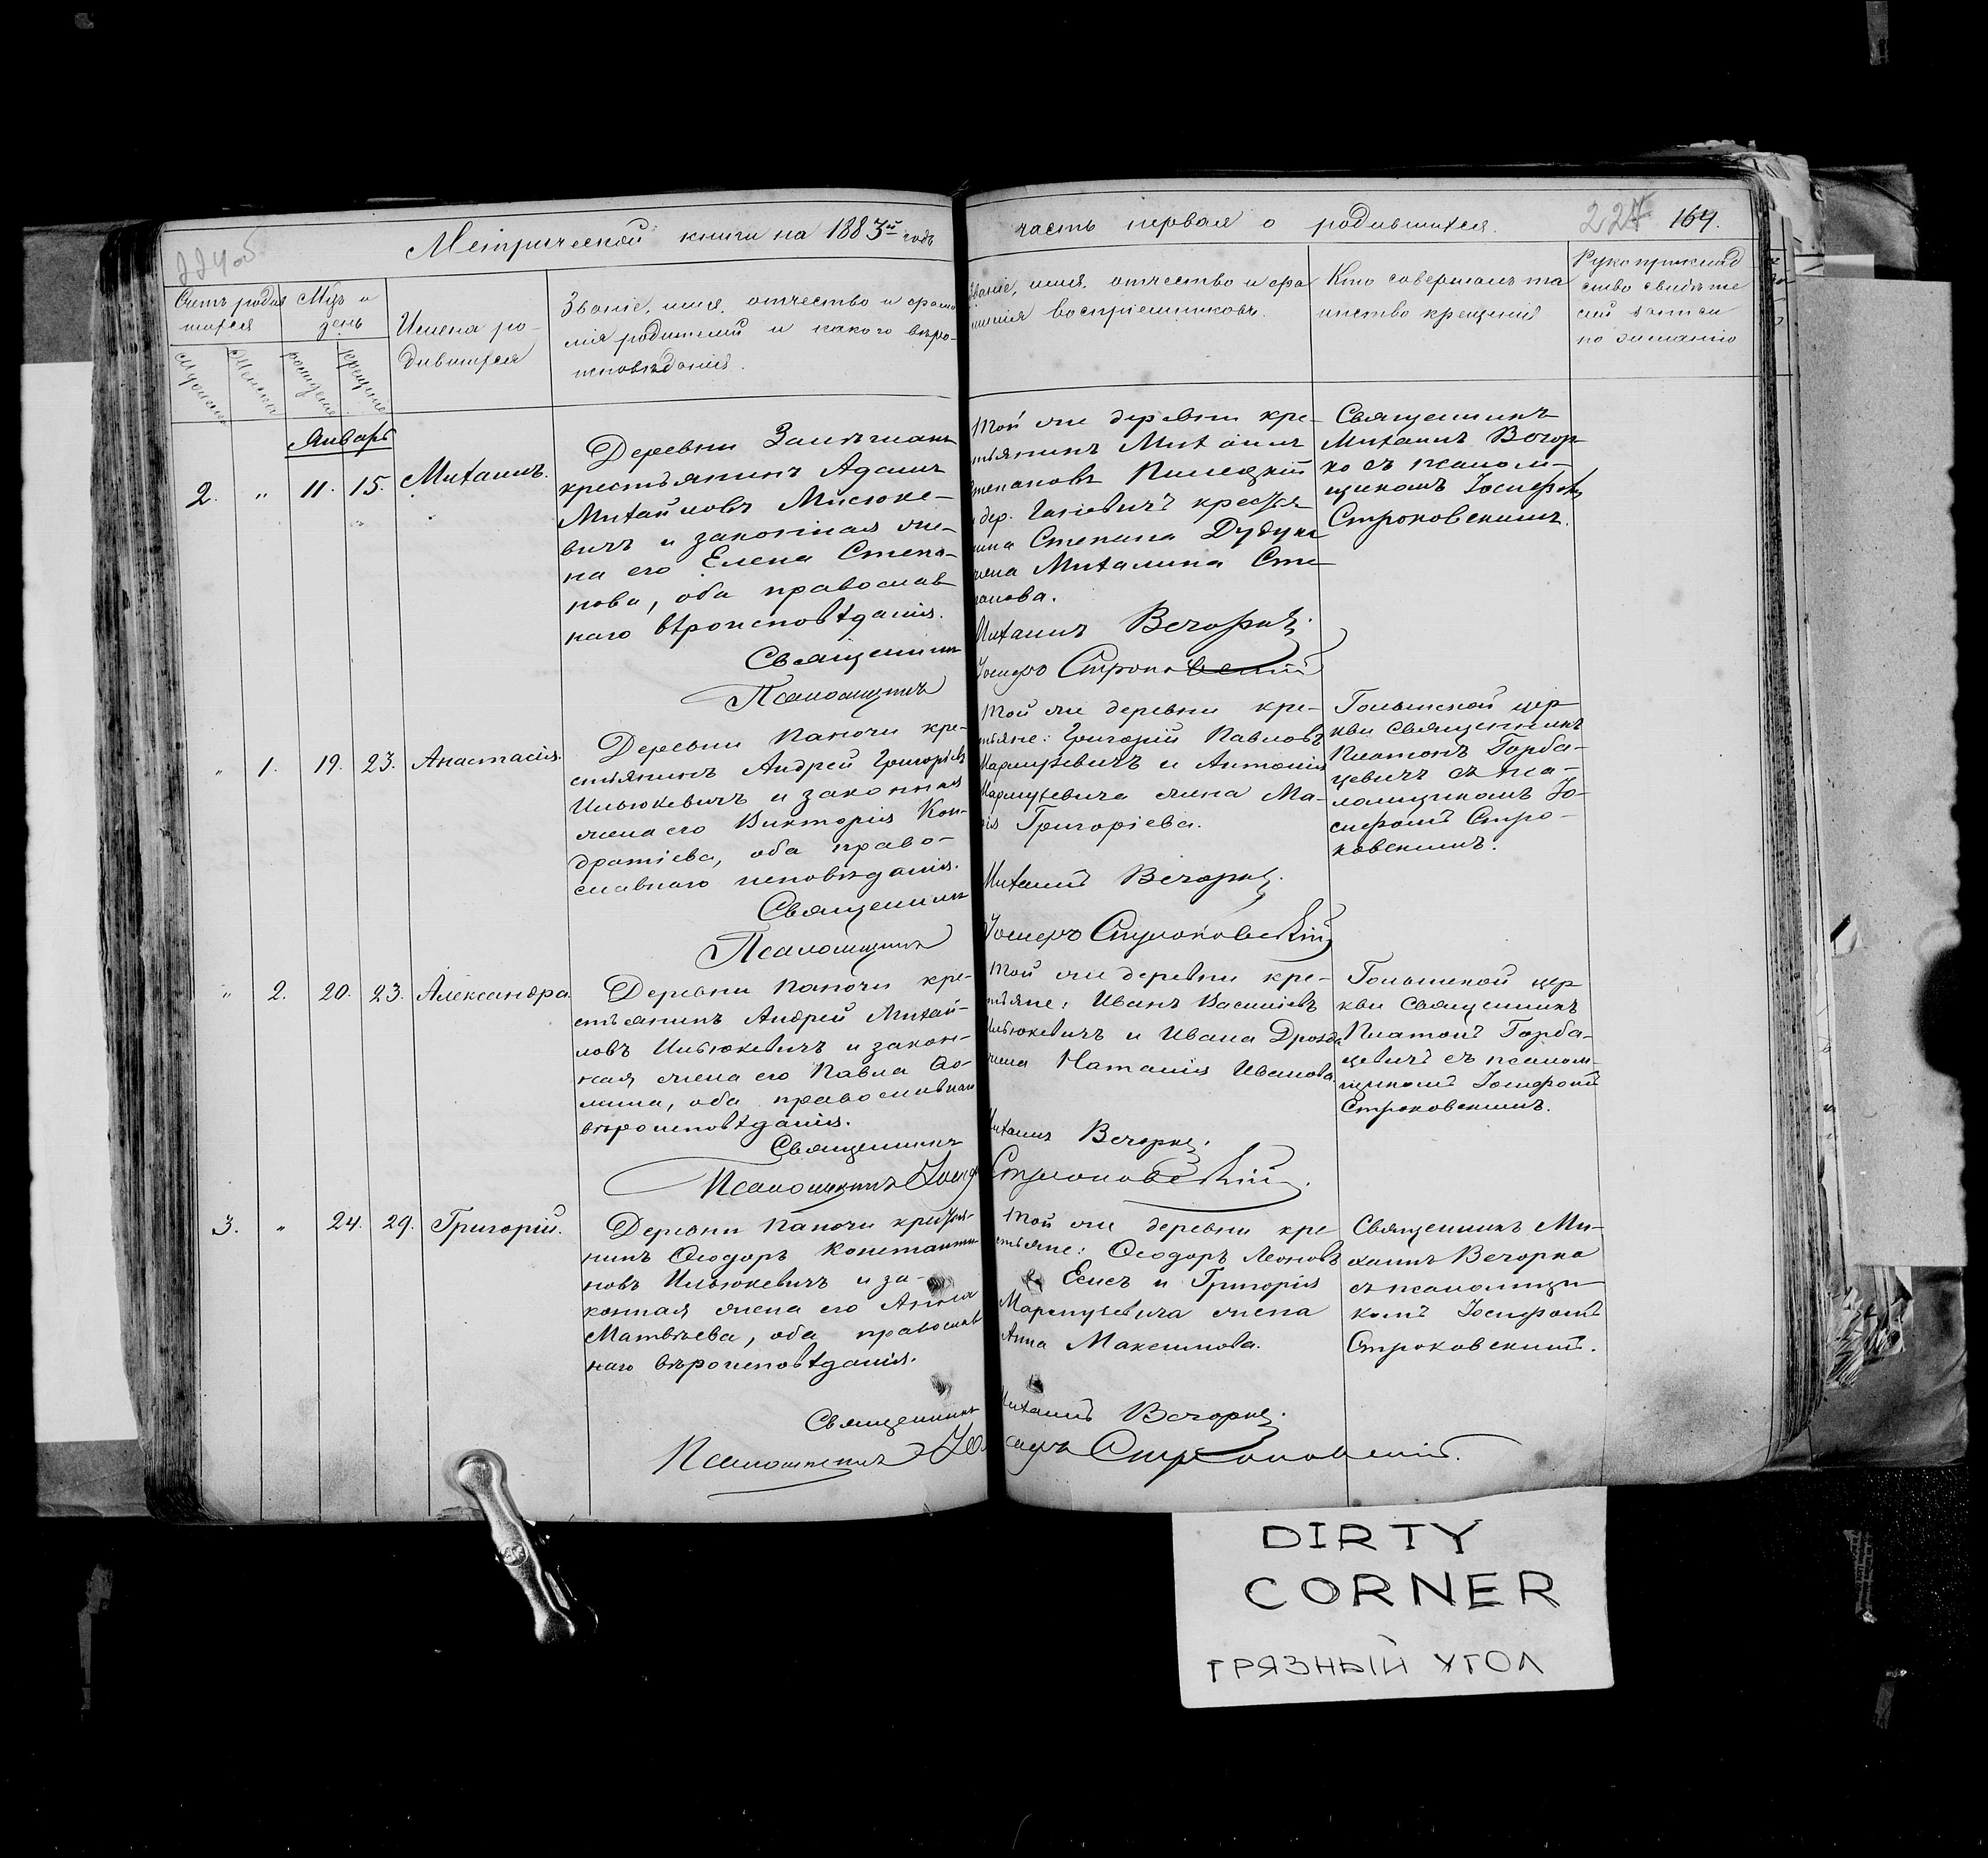 Метрической книги на 1883й годъ
часть первая о родившихся.
227 164.
Счетъ родив
шихся
Мѣс. и
день
Имена ро-
дившихся
Званіе, имя, отчество и фами
лія родителей и какого вѣро-
исповѣданія.
Званіе, имя, отчество и фа
милія воспріемниковъ.
Кто совершалъ та
инство крещенія
Рукоприклад
ство свидѣте
лей записи
по желанію
рожденіе
крещеніе
Январь
2. " 11. 15. Михаилъ.
Деревни
крестьянинъ Адамъ
Михайловъ Мисюке-
вичъ и законная же-
на его Елена Степа-
нова, оба православ
наго вѣроисповѣданія.
Священникъ
Псаломщикъ
Той же деревни кре-
стьянинъ Михаилъ
Степановъ Пилецкій
и дер. крестья
нина Степана Дудука
жена Михалина Сте
панова.
Михаилъ Вечорко.
Іосифъ Строковскій
Священникъ
Михаилъ Вечор
ко съ псалом-
щикомъ Іосифомъ
Строковскимъ.
" 1. 19. 23. Анастасія.
Деревни Паночи кре-
стьянинъ Андрей Григорьевъ
Ильюкевичъ и законная
жена его Викторія Кон-
дратіева, оба право-
славнаго исповѣданія.
Священникъ
Псаломщикъ
Той же деревни кре-
стьяне: Григорій Павловъ
Марцукевичъ и Антонія
Марцукевича жена Ма-
рія Григоріева.
Михаилъ Вечорко.
Іосифъ Строковскій
Голынской цер
кви Священникъ
Платонъ Горба-
цевичъ съ пса-
ломщикомъ Іо-
сифомъ Стро-
ковскимъ.
" 2. 20. 23. Александра.
Деревни Паночи кре-
стьянинъ Андрей Михай-
ловъ Ильюкевичъ и закон-
ная жена его Павла Ѳо-
мина, оба православнаго
вѣроисповѣданія.
Священникъ
Псаломщикъ Іосифъ
Той же деревни кре-
стьяне: Иванъ Васильевъ
Ильюкевичъ и Ивана Дрозда
жена Наталія Иванова.
Михаилъ Вечорко.
Строковскій.
Голынской цер
кви Священникъ
Платонъ Горба-
цевичъ съ псалом-
щикомъ Іосифомъ
Строковскимъ.
3. " 24. 29. Григорій.
Деревни Паночи крестья-
нинъ Ѳеодоръ Константи
новъ Ильюкевичъ и за-
конная жена его
Матвѣева, оба православ
наго вѣроисповѣданія.
Священникъ
Псаломщикъ Іо
Той же деревни кре
стьяне: Ѳеодоръ Леоновъ
Есисъ и Григорія
Марцукевича жена
Анна Максимова.
Михаилъ Вечорко.
сифъ Строковскій.
Священникъ Ми-
хаилъ Вечорко
съ псаломщи
комъ Іосифомъ
Строковскимъ.
DIRTY
CORNER
ГРЯЗНЫЙ УГОЛ